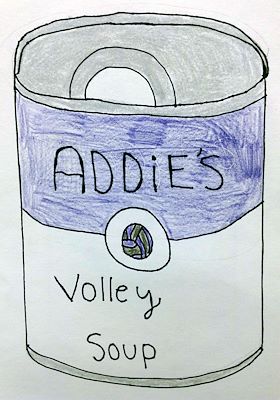 ADDiE's
Volley
Soup